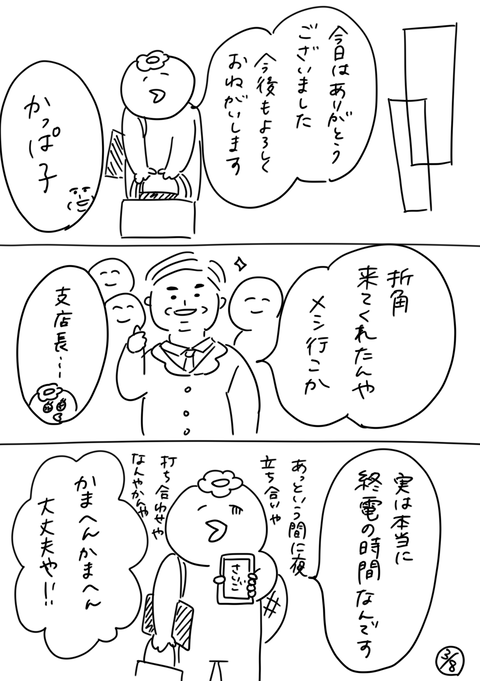 今日はありがとう
ございました
今後もよろしく
おねがいします
かっぱ子
折角
来てくれたんや
メシ行こか
支店長…
実は本当に
終電の時間なんです
あっという間に夜
立ち合いや
打ち合わせや
なんやかんや
さいご
かまへんかまへん
大丈夫や!!
3/8